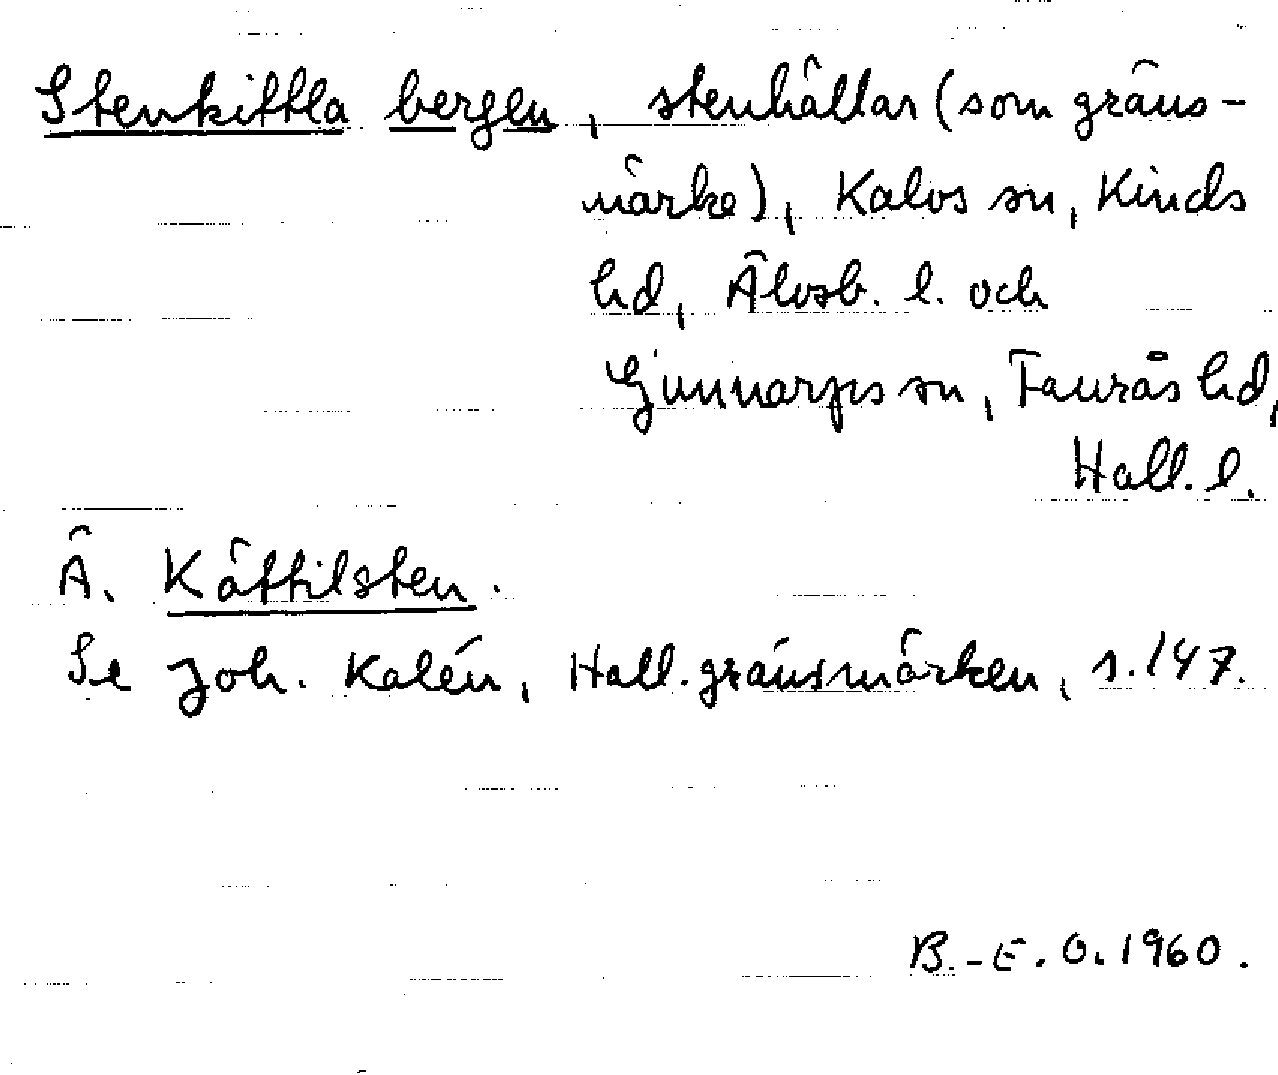 Stenkittla bergen, stenhällar (som gräns-
märke), Kalvs sn, Kinds
hd, Älvsb. l. och
Gunnarps sn, Faurås hd,
Hall. l.
Ä. Kättilsten.
Se Joh. Kalén, Hall. gränsmärken, s. 147.
B.-E. O. 1960.